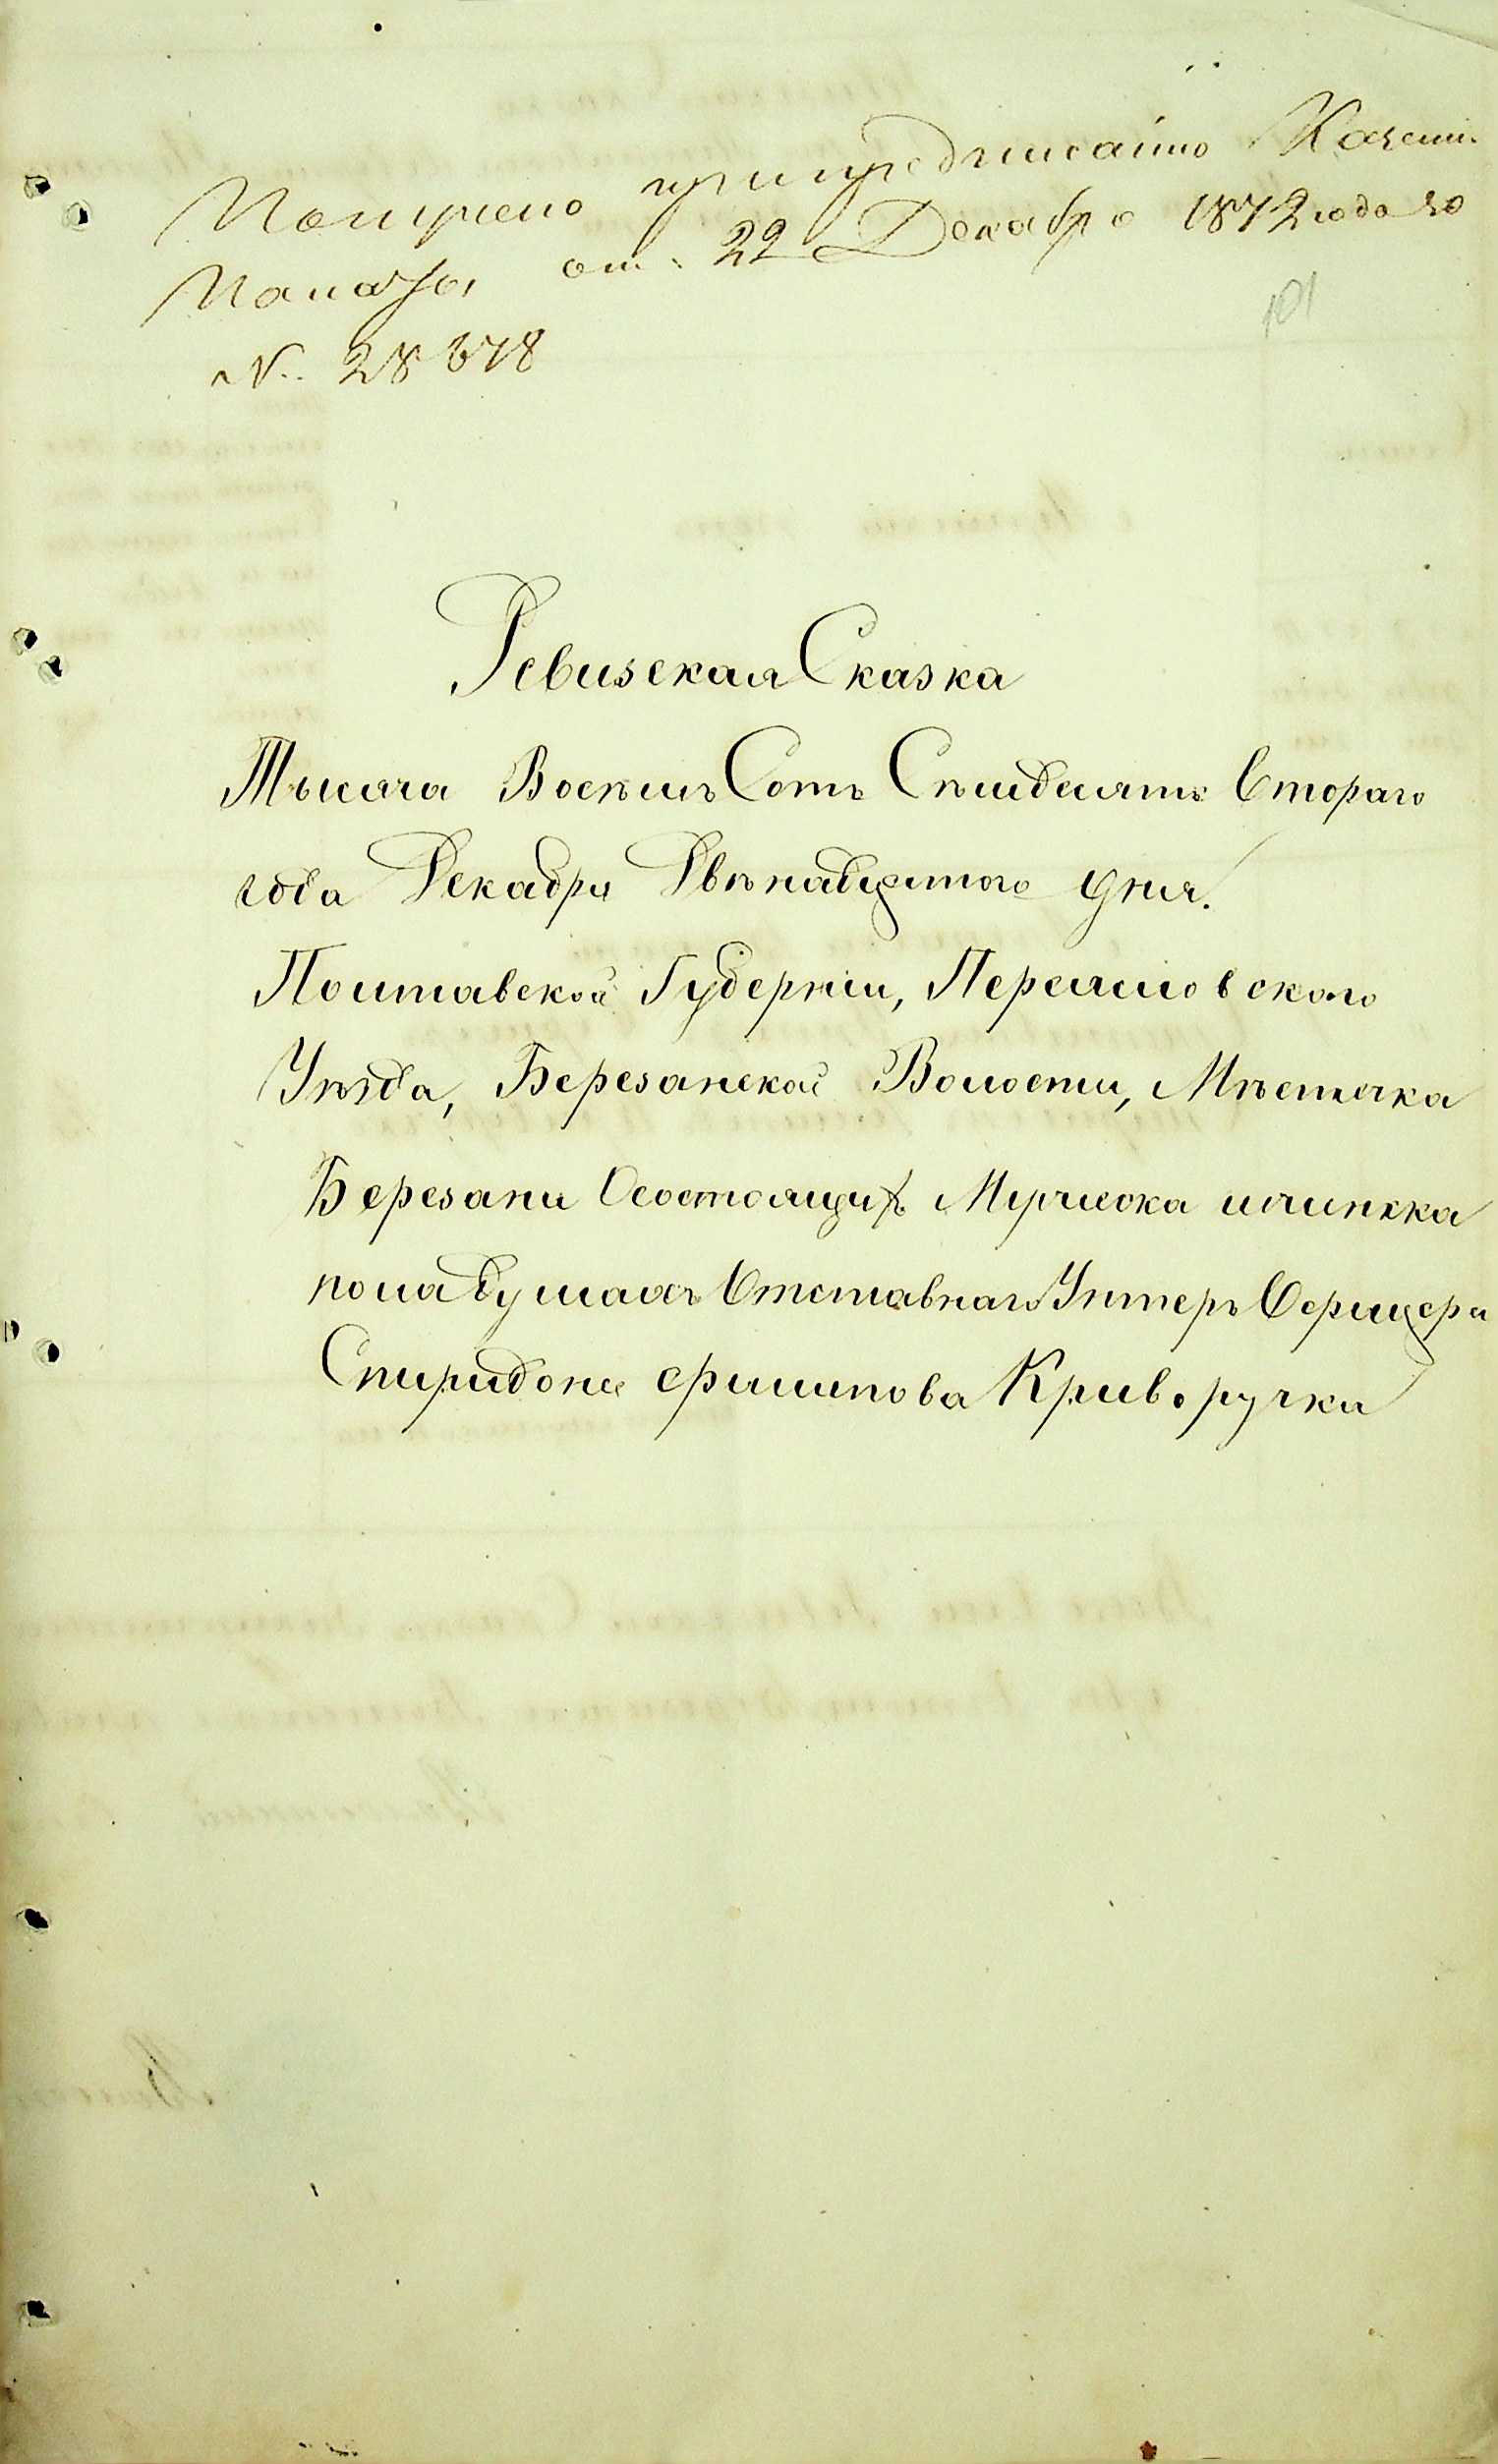 Получено при предписаніи Казен.
Палаты от. 22 Декабря 1872 года за
N. 28678
101
Ревизская Сказка
Тысяча Восѣмь Сотъ Сѣмдесятъ Втораго
года Декабря Двѣнадцатого дня.
Полтавской Губерніи, Переяславского
Уѣзда, Березанской Волости, Мѣстечка
Березани О состоящихъ Мужеска и женска
пола душахъ Отставнаго Унтеръ Офицера
Спиридона Филипова Криворучка